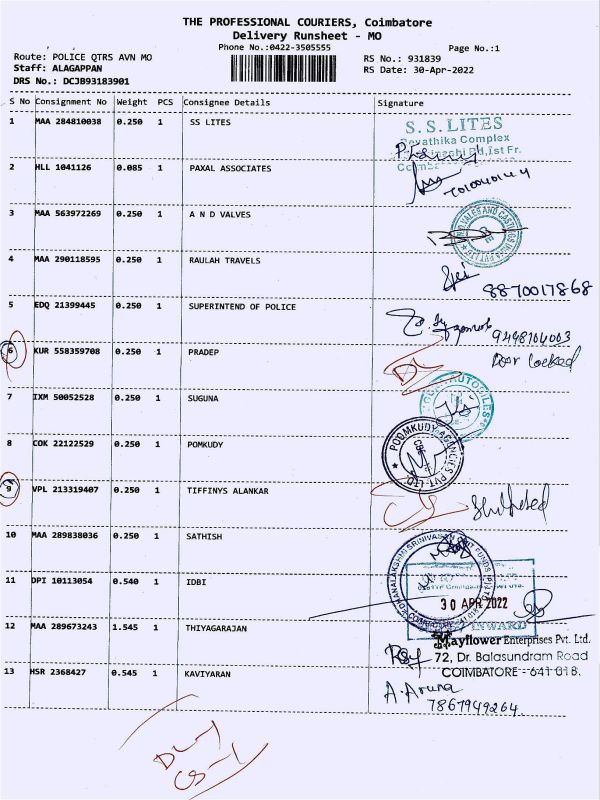 THE PROFESSIONAL COURIERS, Coimbatore
Delivery Runsheet - MO
Phone No.:0422-3505555
Page No.:1
Route: POLICE QTRS AVN MO
RS No.: 931839
Staff: ALAGAPPAN
RS Date: 30-Apr-2022
DRS No.: DCJB93183901
S No Consignment No Weight PCS Consignee Details Signature
1 MAA 284810038 0.250 1 SS LITES
S.S.LITES
Complex
2 HLL 1041126 0.085 1 PAXAL ASSOCIATES
3 MAA 563972269 0.250 1 A N D VALVES
4 MAA 290118595 0.250 1 RAULAH TRAVELS
8870017868
5 EDQ 21399445 0.250 1 SUPERINTEND OF POLICE
6 KUR 558359708 0.250 1 PRADEP
Door Locked
DL
7 IXM 50052528 0.250 1 SUGUNA
8 COK 22122529 0.250 1 POMKUDY
POOMKUDY AGENCIES PVT. LTD.
9 VPL 213319407 0.250 1 TIFFINYS ALANKAR
10 MAA 289838036 0.250 1 SATHISH
11 DPI 10113054 0.540 1 IDBI
30 APR 2022
INWARD
12 MAA 289673243 1.545 1 THIYAGARAJAN
Mayflower Enterprises Pvt. Ltd.
72, Dr. Balasundram Road
COIMBATORE - 641 018.
13 HSR 2368427 0.545 1 KAVIYARAN
A. Aruna
7867949264
DL-1
CS-1